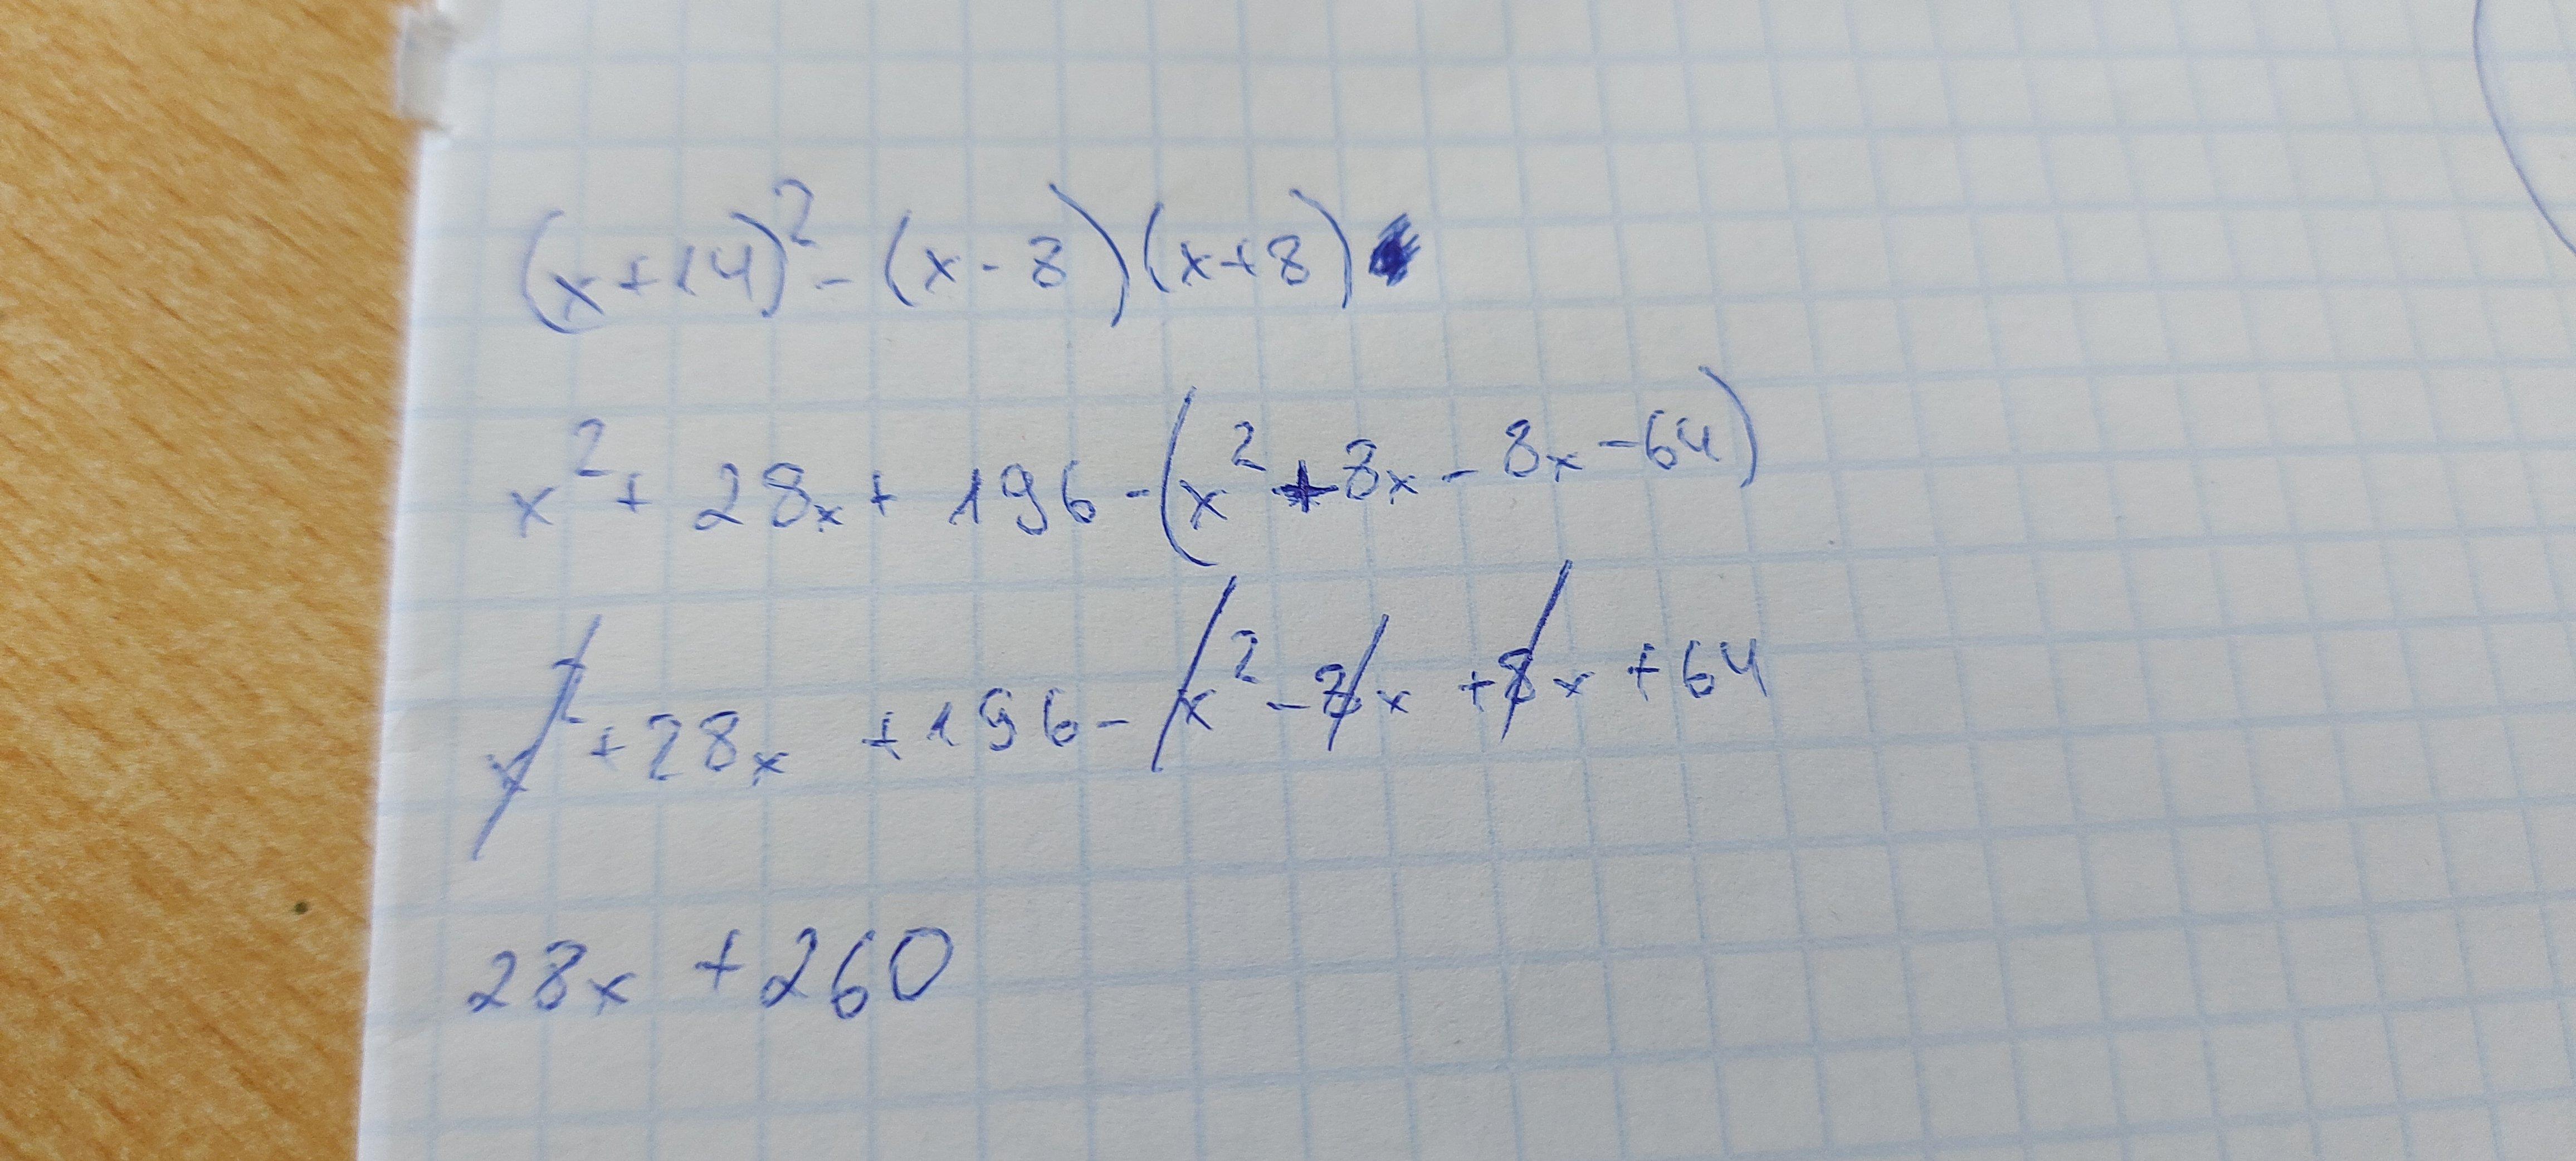 (x+14)² - (x-8)(x+8)
x² + 28x + 196 - (x² + 8x - 8x - 64)
x² + 28x + 196 - x² - 8x + 8x + 64
28x + 260